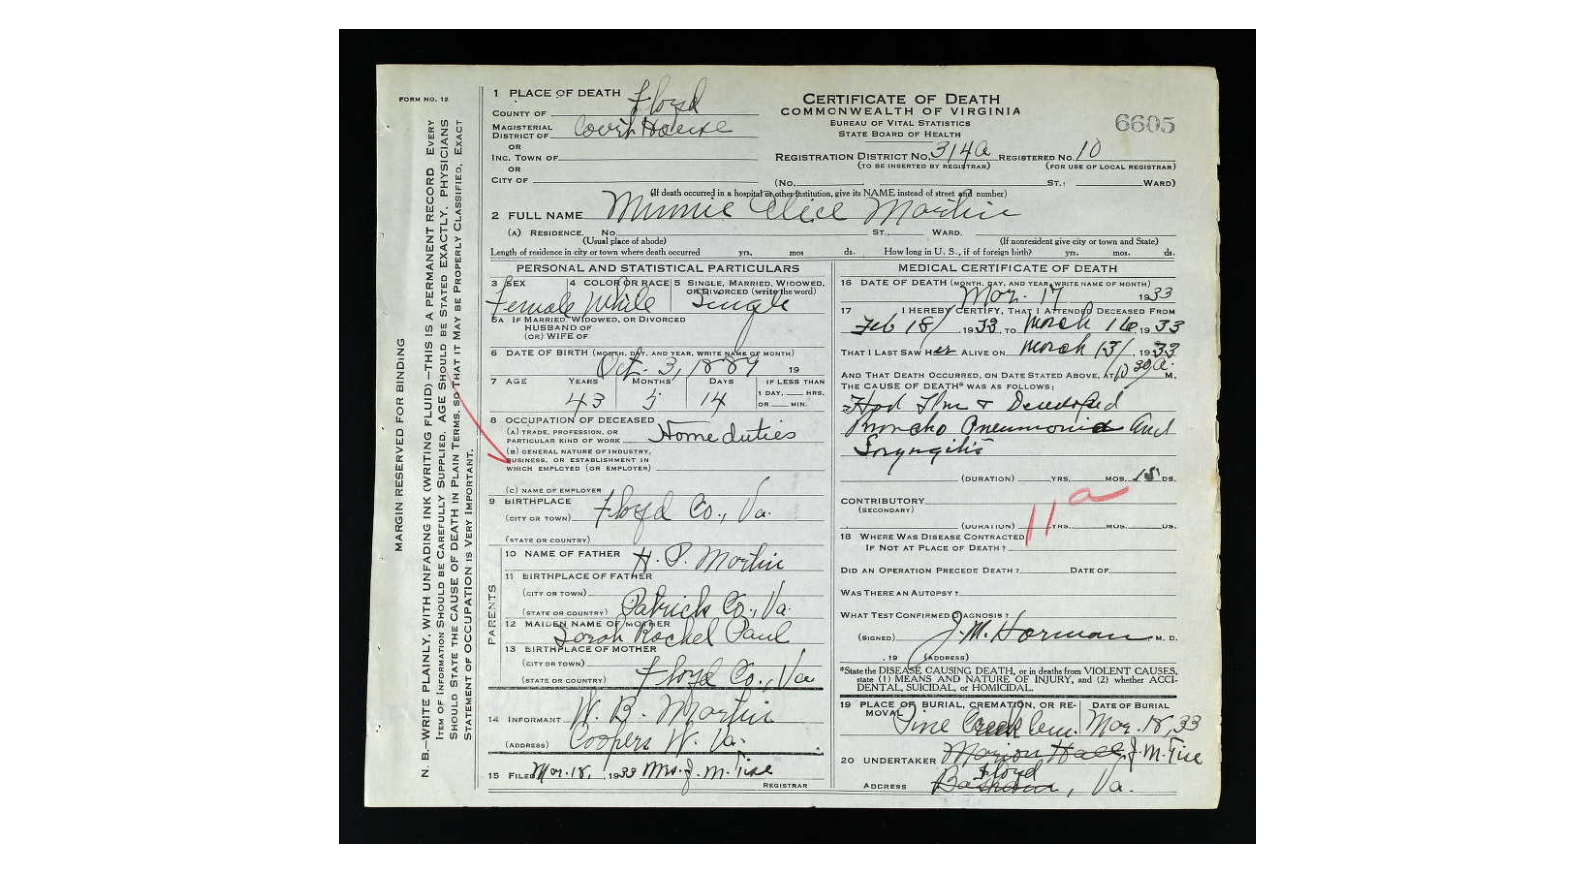 FORM NO. 12
MARGIN RESERVED FOR BINDING
N. B.—WRITE PLAINLY, WITH UNFADING INK (WRITING FLUID)—THIS IS A PERMANENT RECORD. EVERY
ITEM OF INFORMATION SHOULD BE CAREFULLY SUPPLIED. AGE SHOULD BE STATED EXACTLY. PHYSICIANS
SHOULD STATE THE CAUSE OF DEATH IN PLAIN TERMS, SO THAT IT MAY BE PROPERLY CLASSIFIED. EXACT
STATEMENT OF OCCUPATION IS VERY IMPORTANT.
1 PLACE OF DEATH
COUNTY OF Floyd
MAGISTERIAL
DISTRICT OF Court House
OR
INC. TOWN OF
OR
CITY OF
CERTIFICATE OF DEATH
COMMONWEALTH OF VIRGINIA
BUREAU OF VITAL STATISTICS
STATE BOARD OF HEALTH
6605
REGISTRATION DISTRICT NO. 314a REGISTERED NO. 10
(TO BE INSERTED BY REGISTRAR) (FOR USE OF LOCAL REGISTRAR)
(NO. ST.; WARD)
(If death occurred in a hospital or other institution, give its NAME instead of street and number)
2 FULL NAME Minnie Alice Martin
(A) RESIDENCE. NO. ST., WARD.
(Usual place of abode) (If nonresident give city or town and State)
Length of residence in city or town where death occurred yrs. mos ds. How long in U. S., if of foreign birth? yrs. mos. ds.
PERSONAL AND STATISTICAL PARTICULARS
3 SEX 4 COLOR OR RACE 5 SINGLE, MARRIED, WIDOWED,
OR DIVORCED (write the word)
Female White Single
5A IF MARRIED, WIDOWED, OR DIVORCED
HUSBAND OF
(OR) WIFE OF
6 DATE OF BIRTH (MONTH, DAY, AND YEAR, WRITE NAME OF MONTH)
Oct. 3, 1889 19
7 AGE YEARS MONTHS DAYS IF LESS THAN
1 DAY, HRS.
OR MIN.
43 5 14
8 OCCUPATION OF DECEASED
(A) TRADE, PROFESSION, OR
PARTICULAR KIND OF WORK Home duties
(B) GENERAL NATURE OF INDUSTRY,
BUSINESS, OR ESTABLISHMENT IN
WHICH EMPLOYED (OR EMPLOYER)
(C) NAME OF EMPLOYER
9 BIRTHPLACE
(CITY OR TOWN) Floyd Co., Va.
(STATE OR COUNTRY)
PARENTS
10 NAME OF FATHER H. P. Martin
11 BIRTHPLACE OF FATHER
(CITY OR TOWN)
(STATE OR COUNTRY) Patrick Co., Va.
12 MAIDEN NAME OF MOTHER
Sarah Rachel Paul
13 BIRTHPLACE OF MOTHER
(CITY OR TOWN)
(STATE OR COUNTRY) Floyd Co., Va
14 INFORMANT W. B. Martin
(ADDRESS) Coopers W. Va.
15 FILED Mar. 18, 1933 Mrs. J. M. Tise
REGISTRAR
MEDICAL CERTIFICATE OF DEATH
16 DATE OF DEATH (MONTH, DAY, AND YEAR, WRITE NAME OF MONTH)
Mar. 17 1933
17 I HEREBY CERTIFY, THAT I ATTENDED DECEASED FROM
Feb 18/, 1933, TO March 16, 1933
THAT I LAST SAW Her ALIVE ON March 13/, 1933
AND THAT DEATH OCCURRED, ON DATE STATED ABOVE, AT 10 30 a. M.
THE CAUSE OF DEATH* WAS AS FOLLOWS:
Had Flu & Developed
Broncho Pneumonia and
Laryngitis
(DURATION) YRS. MOS. 18 DS.
CONTRIBUTORY
(SECONDARY)
11 a
(DURATION) YRS. MOS. DS.
18 WHERE WAS DISEASE CONTRACTED
IF NOT AT PLACE OF DEATH?
DID AN OPERATION PRECEDE DEATH? DATE OF
WAS THERE AN AUTOPSY?
WHAT TEST CONFIRMED DIAGNOSIS?
(SIGNED) J. M. Harman M. D.
, 19 (ADDRESS)
*State the DISEASE CAUSING DEATH, or in deaths from VIOLENT CAUSES,
state (1) MEANS AND NATURE OF INJURY, and (2) whether ACCI-
DENTAL, SUICIDAL, or HOMICIDAL.
19 PLACE OF BURIAL, CREMATION, OR RE-
MOVAL DATE OF BURIAL
Pine Creek Cem. Mar. 18, 33
20 UNDERTAKER Marion Hall J. M. Tise
Floyd
ADDRESS , Va.